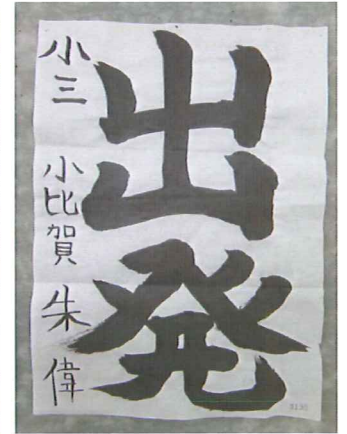 出発
小三 小比賀 朱偉